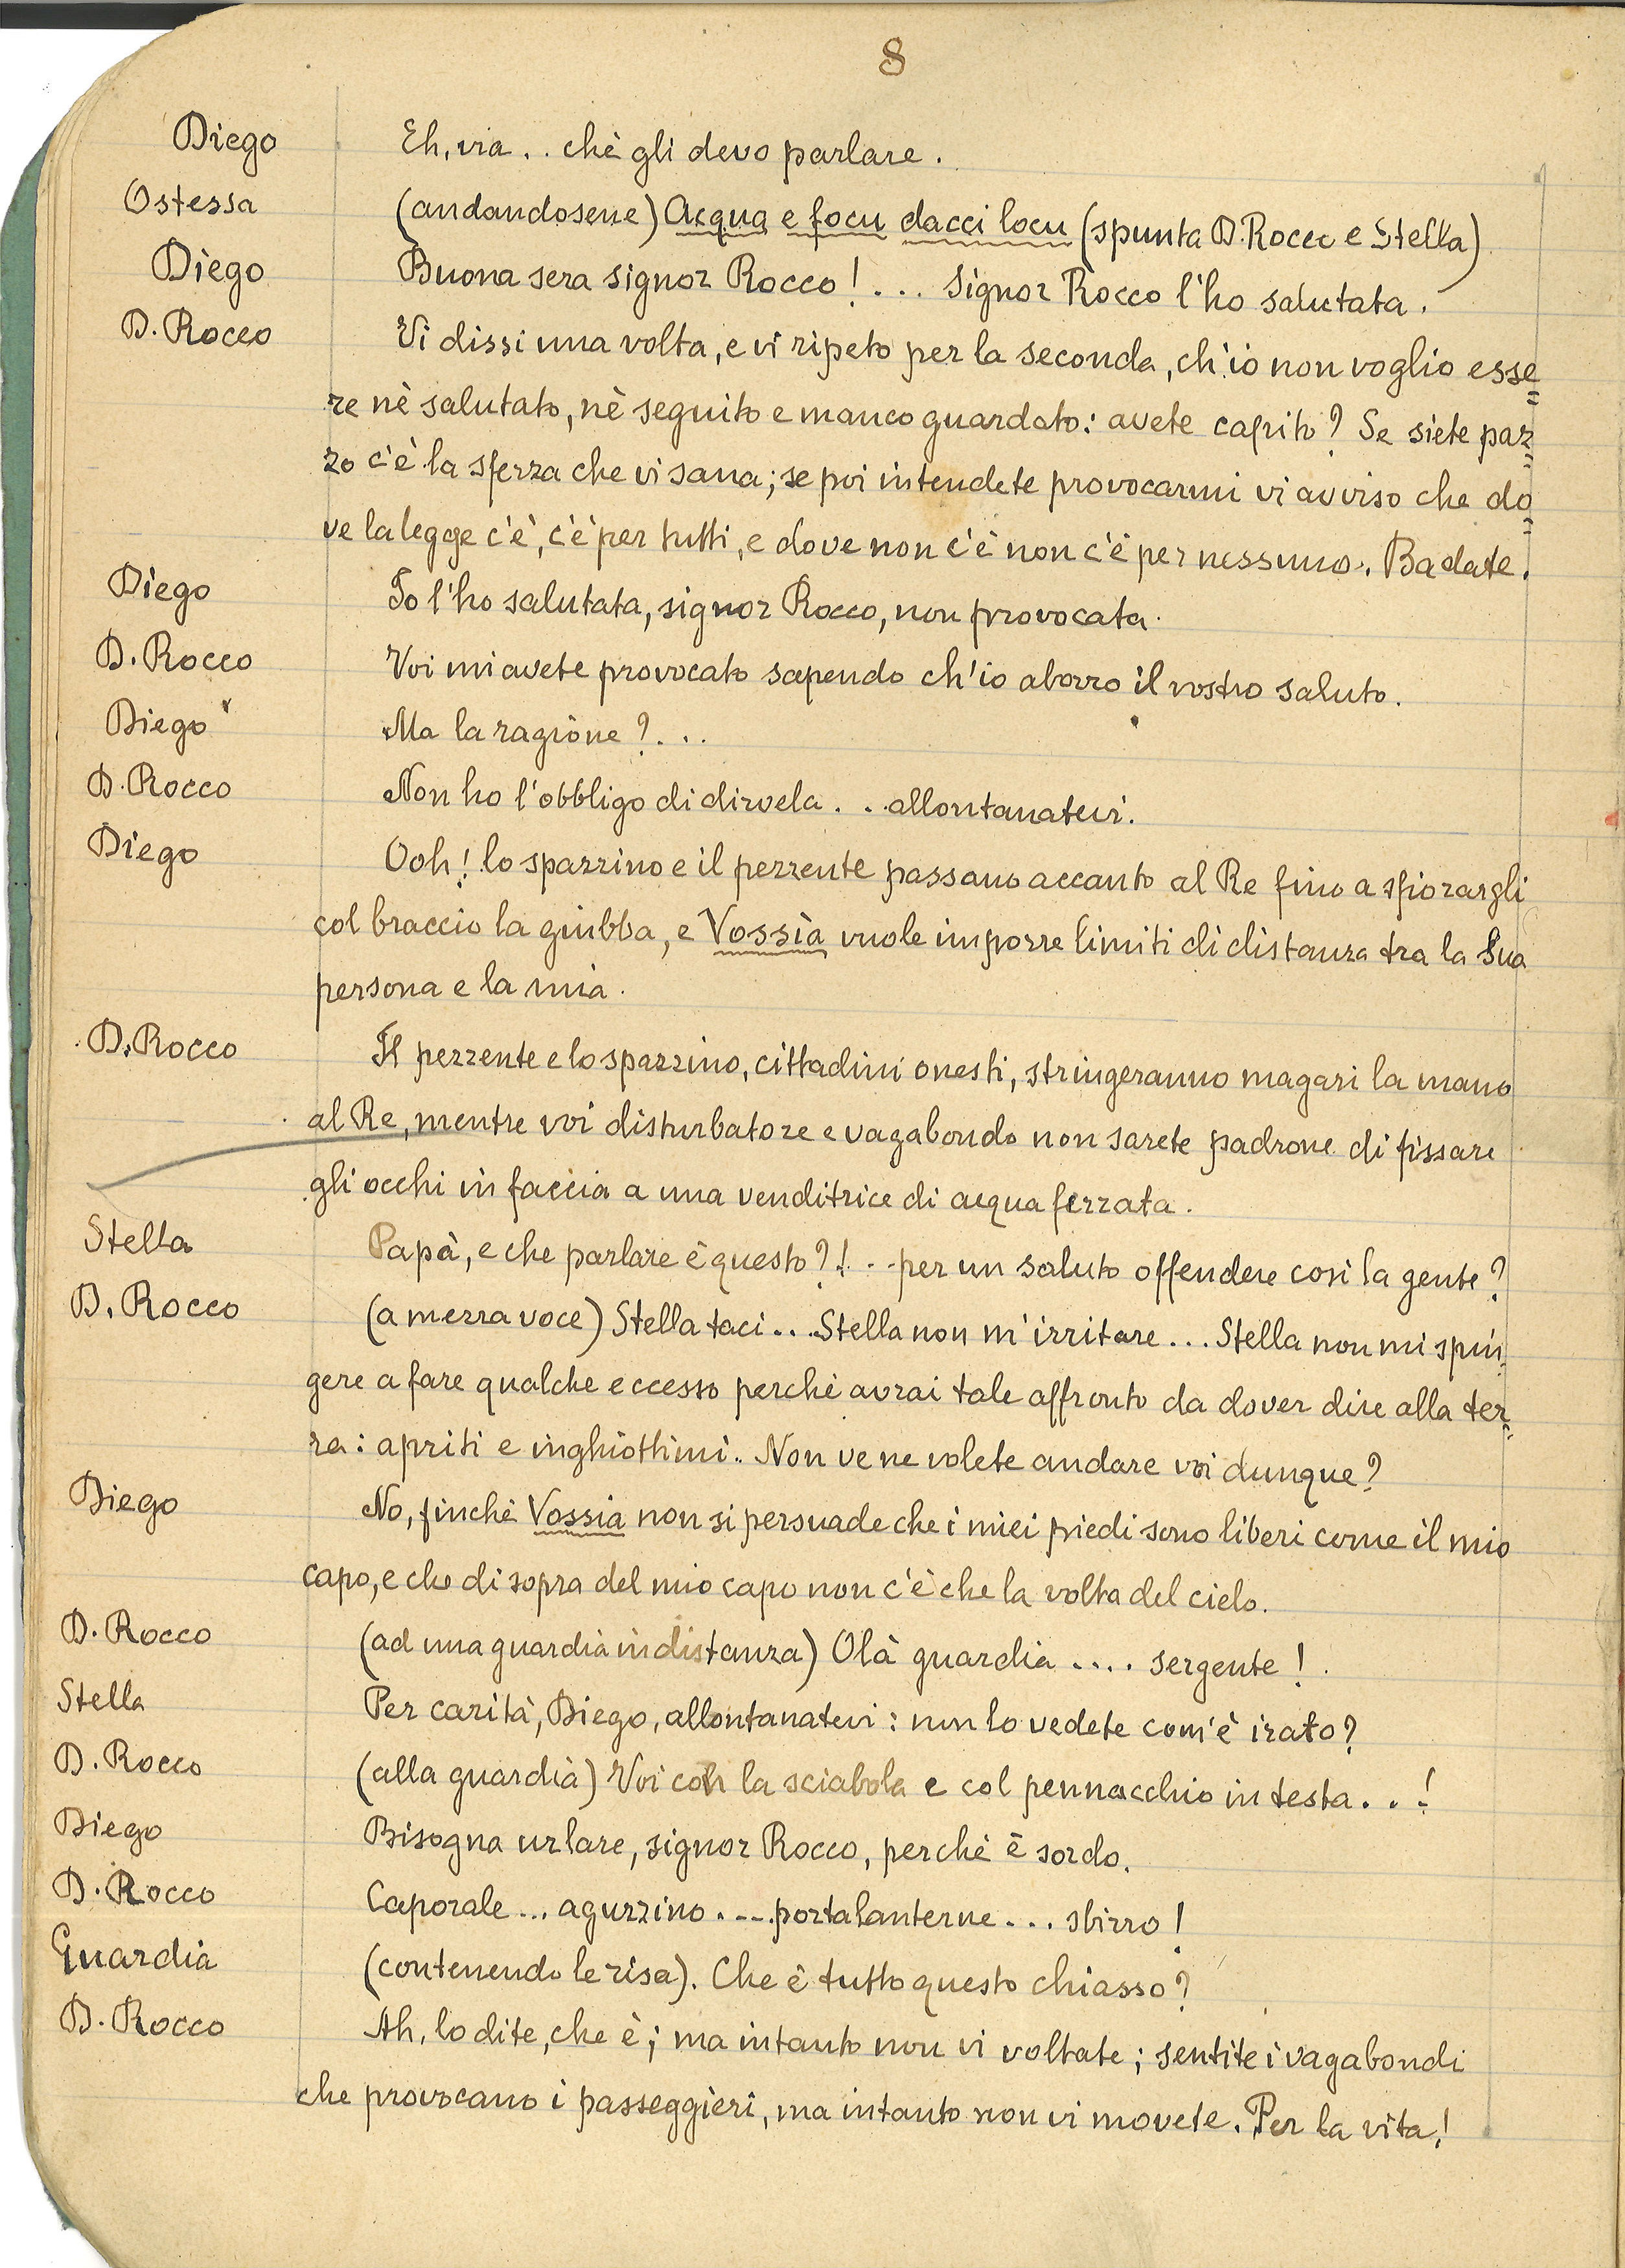 8
Diego Eh, via.. chè gli devo parlare.
Ostessa (andandosene) Acqua e focu dacci locu (spunta D. Rocco e Stella)
Diego Buona sera signor Rocco!... Signor Rocco l'ho salutata.
D. Rocco Vi dissi una volta, e vi ripeto per la seconda, ch'io non voglio esse=
re nè salutato, nè seguito e manco guardato: avete capito? Se siete paz=
zo c'è la sferza che vi sana; se poi intendete provocarmi vi avviso che do=
ve la legge c'è, c'è per tutti, e dove non c'è non c'è per nessuno. Badate.
Diego Io l'ho salutata, signor Rocco, non provocata.
D. Rocco Voi mi avete provocato sapendo ch'io aborro il vostro saluto.
Diego Ma la ragione?...
D. Rocco Non ho l'obbligo di dirvela... allontanatevi.
Diego Ooh! lo spazzino e il pezzente passano accanto al Re fino a sfiorargli
col braccio la giubba, e Vossìa vuole imporre limiti di distanza tra la Sua
persona e la mia.
D. Rocco Il pezzente e lo spazzino, cittadini onesti, stringeranno magari la mano
al Re, mentre voi disturbatore e vagabondo non sarete padrone di fissare
gli occhi in faccia a una venditrice di acqua ferrata.
Stella Papà, e che parlare è questo?!... per un saluto offendere così la gente?
D. Rocco (a mezza voce) Stella taci... Stella non m'irritare... Stella non mi spin=
gere a fare qualche eccesso perchè avrai tale affronto da dover dire alla ter=
ra: apriti e inghiottimi.. Non ve ne volete andare voi dunque?
Diego No, finchè Vossia non si persuade che i miei piedi sono liberi come il mio
capo, e che di sopra del mio capo non c'è che la volta del cielo.
D. Rocco (ad una guardia in distanza) Olà guardia.... sergente!
Stella Per carità, Diego, allontanatevi: non lo vedete com'è irato?
D. Rocco (alla guardia) Voi con la sciabola e col pennacchio in testa...!
Diego Bisogna urlare, signor Rocco, perchè è sordo.
D. Rocco Caporale... aguzzino.... portalanterne... sbirro!
Guardia (contenendo le risa). Che è tutto questo chiasso?
D. Rocco Ah, lo dite, che è; ma intanto non vi voltate; sentite i vagabondi
che provocano i passeggieri, ma intanto non vi movete. Per la vita!